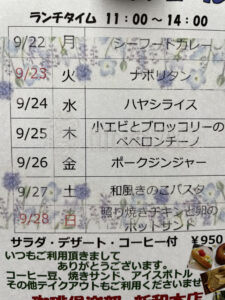 ランチタイム 11:00～14:00
9/22 月 シーフードカレー
9/23 火 ナポリタン
9/24 水 ハヤシライス
9/25 木 小エビとブロッコリーの
ペペロンチーノ
9/26 金 ポークジンジャー
9/27 土 和風きのこパスタ
9/28 日 照り焼きチキンと卵の
ホットサンド
サラダ・デザート・コーヒー付 ¥950
いつもご利用頂きまして
ありがとうございます。
コーヒー豆、焼きサンド、アイスボトル
その他テイクアウトもご利用くださいませ